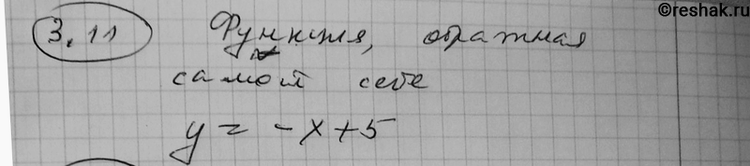 ©reshak.ru
3.11 Функция, обратная
самой себе
y = -x+5